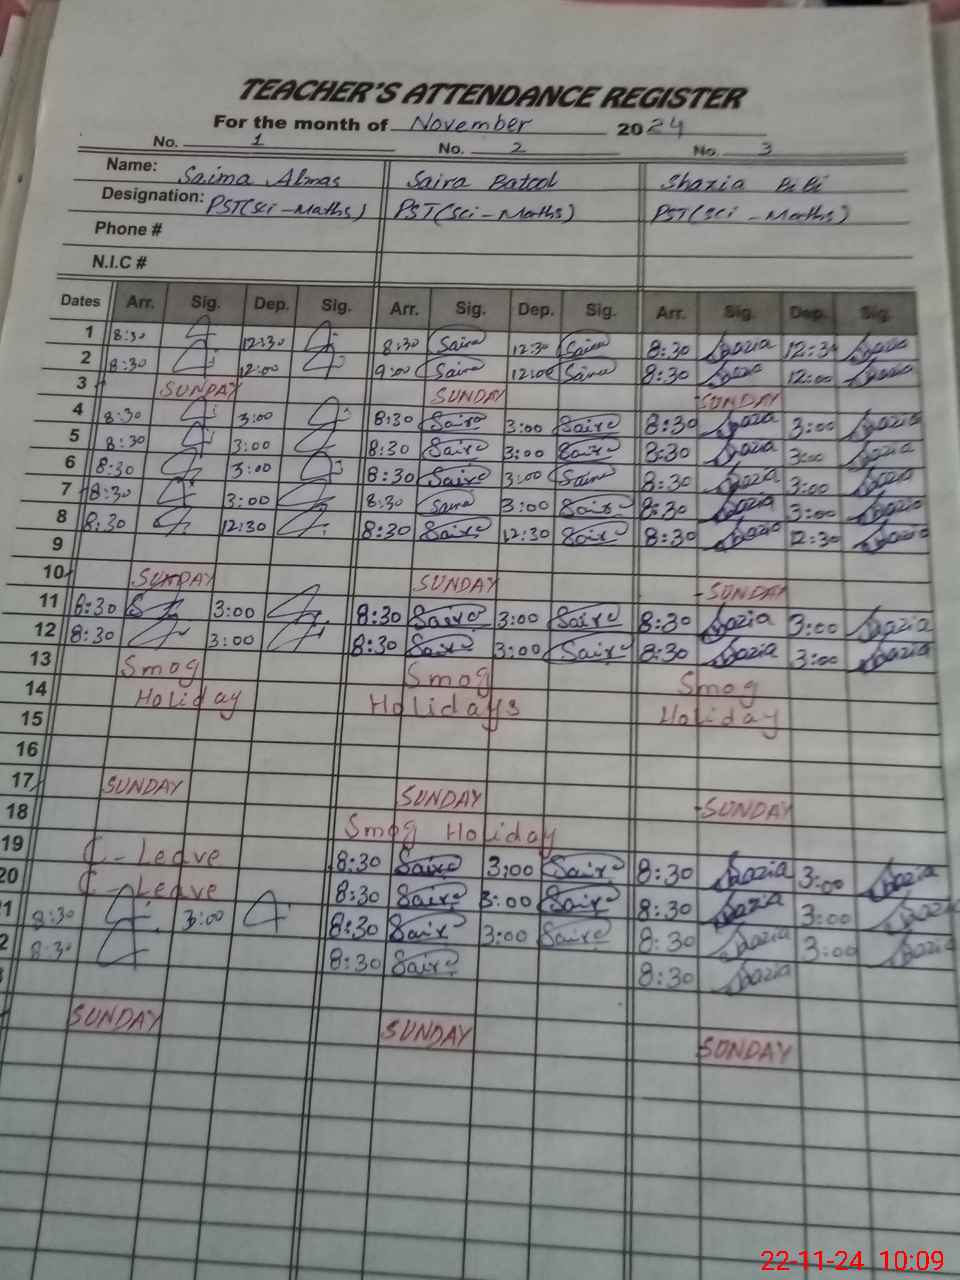 TEACHER'S ATTENDANCE REGISTER
For the month of November 2024
No. 1 No. 2 No. 3
Name: Saima Almas Saira Batool Shazia BiBi
Designation: PST(Sci-Maths) PST(Sci-Maths) PST(Sci-Maths)
Phone #
N.I.C #
Dates Arr. Sig. Dep. Sig. Arr. Sig. Dep. Sig. Arr. Sig. Dep. Sig.
1 8:30 12:30 8:30 Saira 12:30 Saira 8:30 Shazia 12:30 Shazia
2 8:30 12:00 9:00 Saira 12:00 Saira 8:30 Shazia 12:00 Shazia
3 SUNDAY SUNDAY SUNDAY
4 8:30 3:00 8:30 Saira 3:00 Saira 8:30 Shazia 3:00 Shazia
5 8:30 3:00 8:30 Saira 3:00 Saira 8:30 Shazia 3:00 Shazia
6 8:30 3:00 8:30 Saira 3:00 Saira 8:30 Shazia 3:00 Shazia
7 8:30 3:00 8:30 Saira 3:00 Saira 8:30 Shazia 3:00 Shazia
8 8:30 12:30 8:30 Saira 12:30 Saira 8:30 Shazia 12:30 Shazia
9
10 SUNDAY SUNDAY SUNDAY
11 8:30 3:00 8:30 Saira 3:00 Saira 8:30 Shazia 3:00 Shazia
12 8:30 3:00 8:30 Saira 3:00 Saira 8:30 Shazia 3:00 Shazia
13 Smog Smog Smog
14 Holiday Holidays Holiday
15
16
17 SUNDAY SUNDAY SUNDAY
18 Smog Holiday
19 C-Leave 8:30 Saira 3:00 Saira 8:30 Shazia 3:00 Shazia
20 C-Leave 8:30 Saira 3:00 Saira 8:30 Shazia 3:00 Shazia
1 8:30 3:00 8:30 Saira 3:00 Saira 8:30 Shazia 3:00 Shazia
2 8:30 8:30 Saira 8:30 Shazia
SUNDAY SUNDAY SUNDAY
22-11-24 10:09